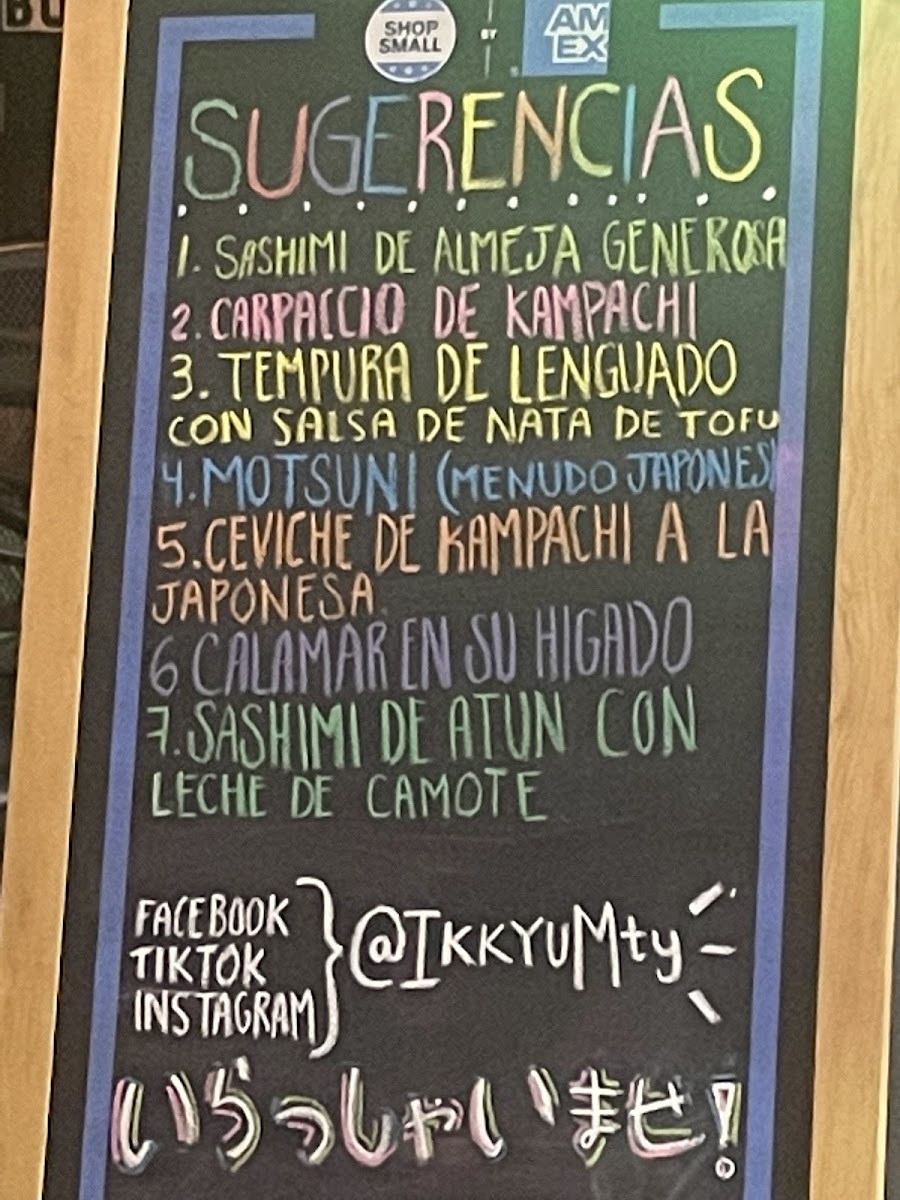 SHOP
SMALL
BY
AM
EX
SUGERENCIAS
1. SASHIMI DE ALMEJA GENEROSA
2. CARPACCIO DE KAMPACHI
3. TEMPURA DE LENGUADO
CON SALSA DE NATA DE TOFU
4. MOTSUNI (MENUDO JAPONES)
5. CEVICHE DE KAMPACHI A LA
JAPONESA.
6 CALAMAR EN SU HIGADO
7. SASHIMI DE ATUN CON
LECHE DE CAMOTE
FACEBOOK
TIKTOK
INSTAGRAM
@IKKYUMty
いらっしゃいませ!